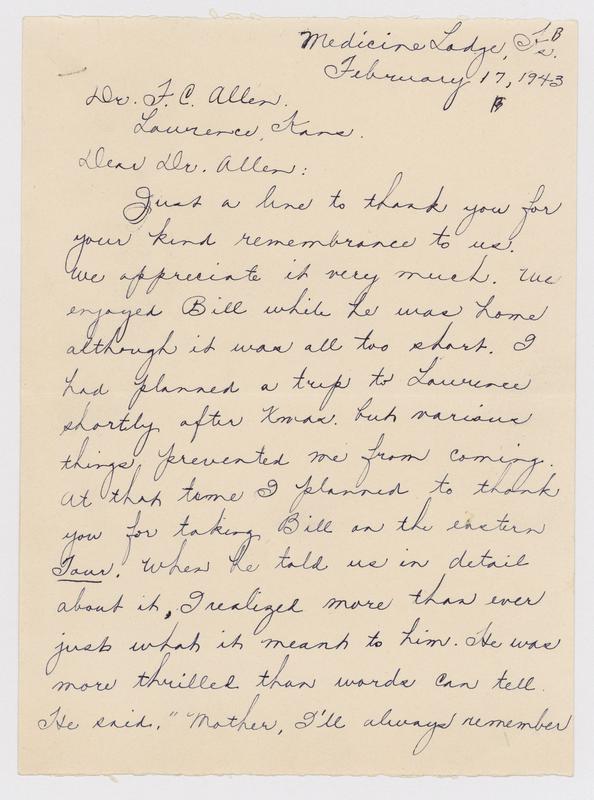 Medicine Lodge, Ks.
February 17, 1943
Dr. F. C. Allen.
Lawrence, Kans.
Dear Dr. Allen:
Just a line to thank you for
your kind remembrance to us.
We appreciate it very much. We
enjoyed Bill while he was home
although it was all too short. I
had planned a trip to Lawrence
shortly after Xmas. but various
things prevented me from coming.
At that time I planned to thank
you for taking Bill on the eastern
Tour. When he told us in detail
about it, I realized more than ever
just what it meant to him. He was
more thrilled than words can tell.
He said, "Mother, I'll always remember